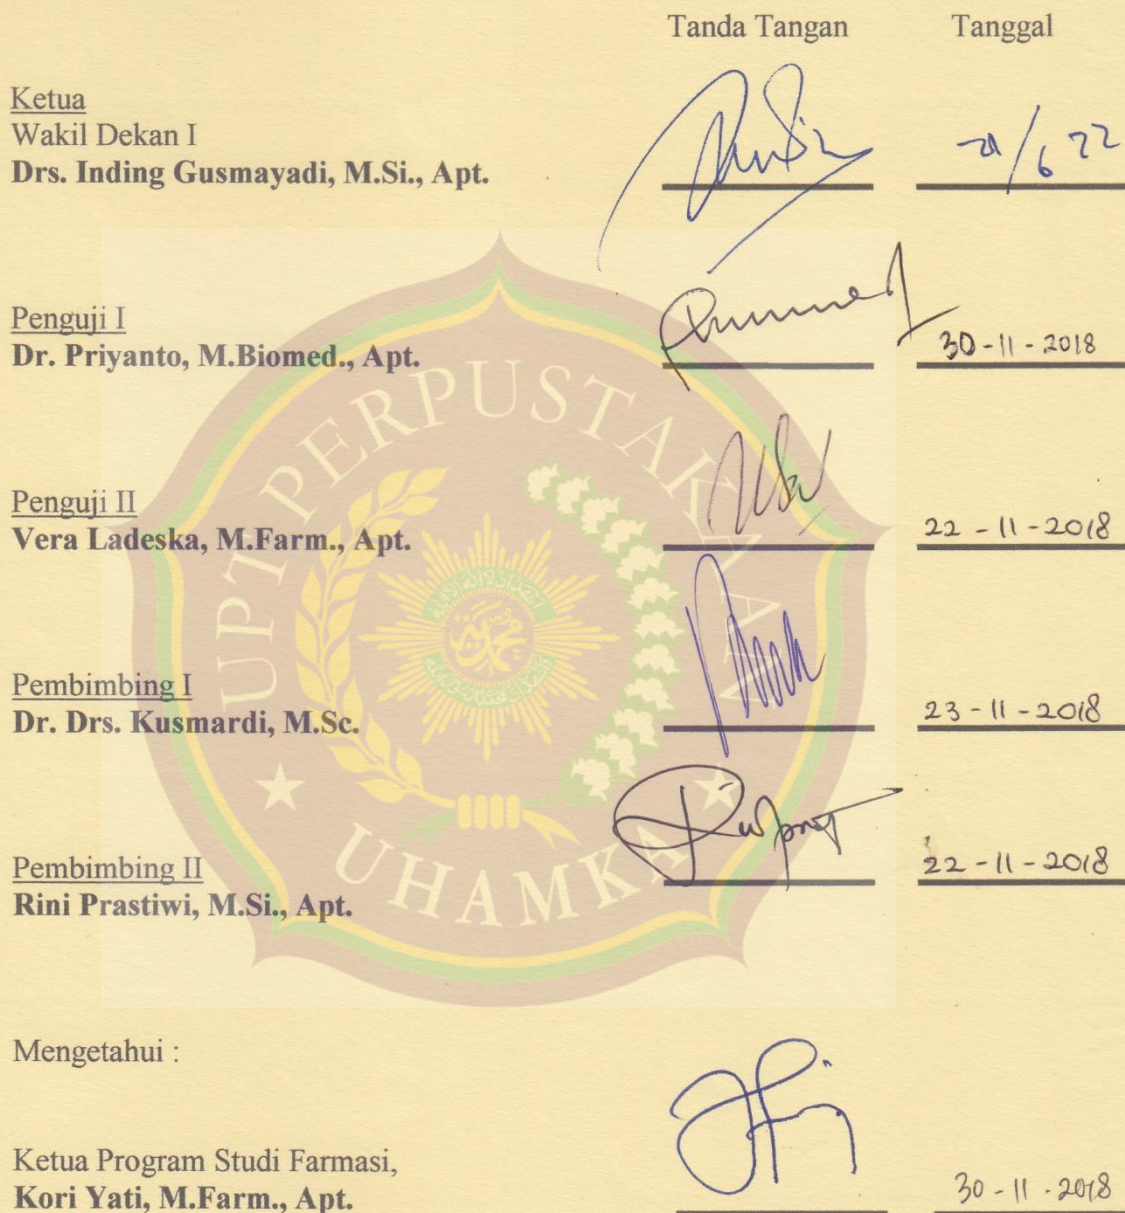 Tanda Tangan Tanggal
Ketua
Wakil Dekan I
Drs. Inding Gusmayadi, M.Si., Apt.
Penguji I
Dr. Priyanto, M.Biomed., Apt.
30-11-2018
Penguji II
Vera Ladeska, M.Farm., Apt.
22-11-2018
Pembimbing I
Dr. Drs. Kusmardi, M.Sc.
23-11-2018
Pembimbing II
22-11-2018
Rini Prastiwi, M.Si., Apt.
UPT PERPUSTAKAAN
UHAMKA
Mengetahui :
Ketua Program Studi Farmasi,
Kori Yati, M.Farm., Apt.
30-11-2018